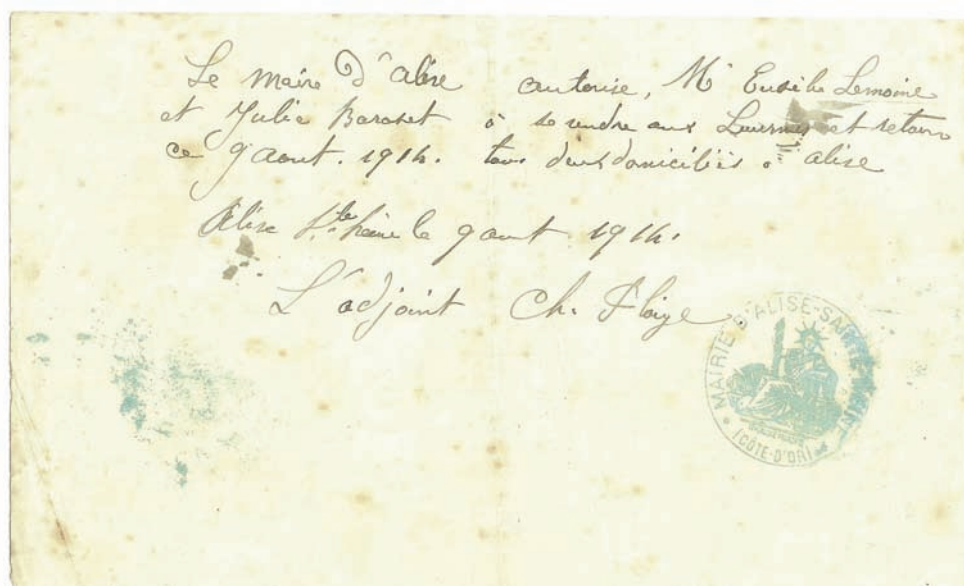 Le maire d'Alise autorise, Mr Eusèbe Lemoine
et Julie Baroset à se rendre aux Laumes et retour
ce 9 aout. 1914. tous deux domiciliés à alise
Alise Ste Reine le 9 aout 1914.
L'adjoint Ch.
MAIRIE D'ALISE-SAINTE-REINE
(CÔTE-D'OR)